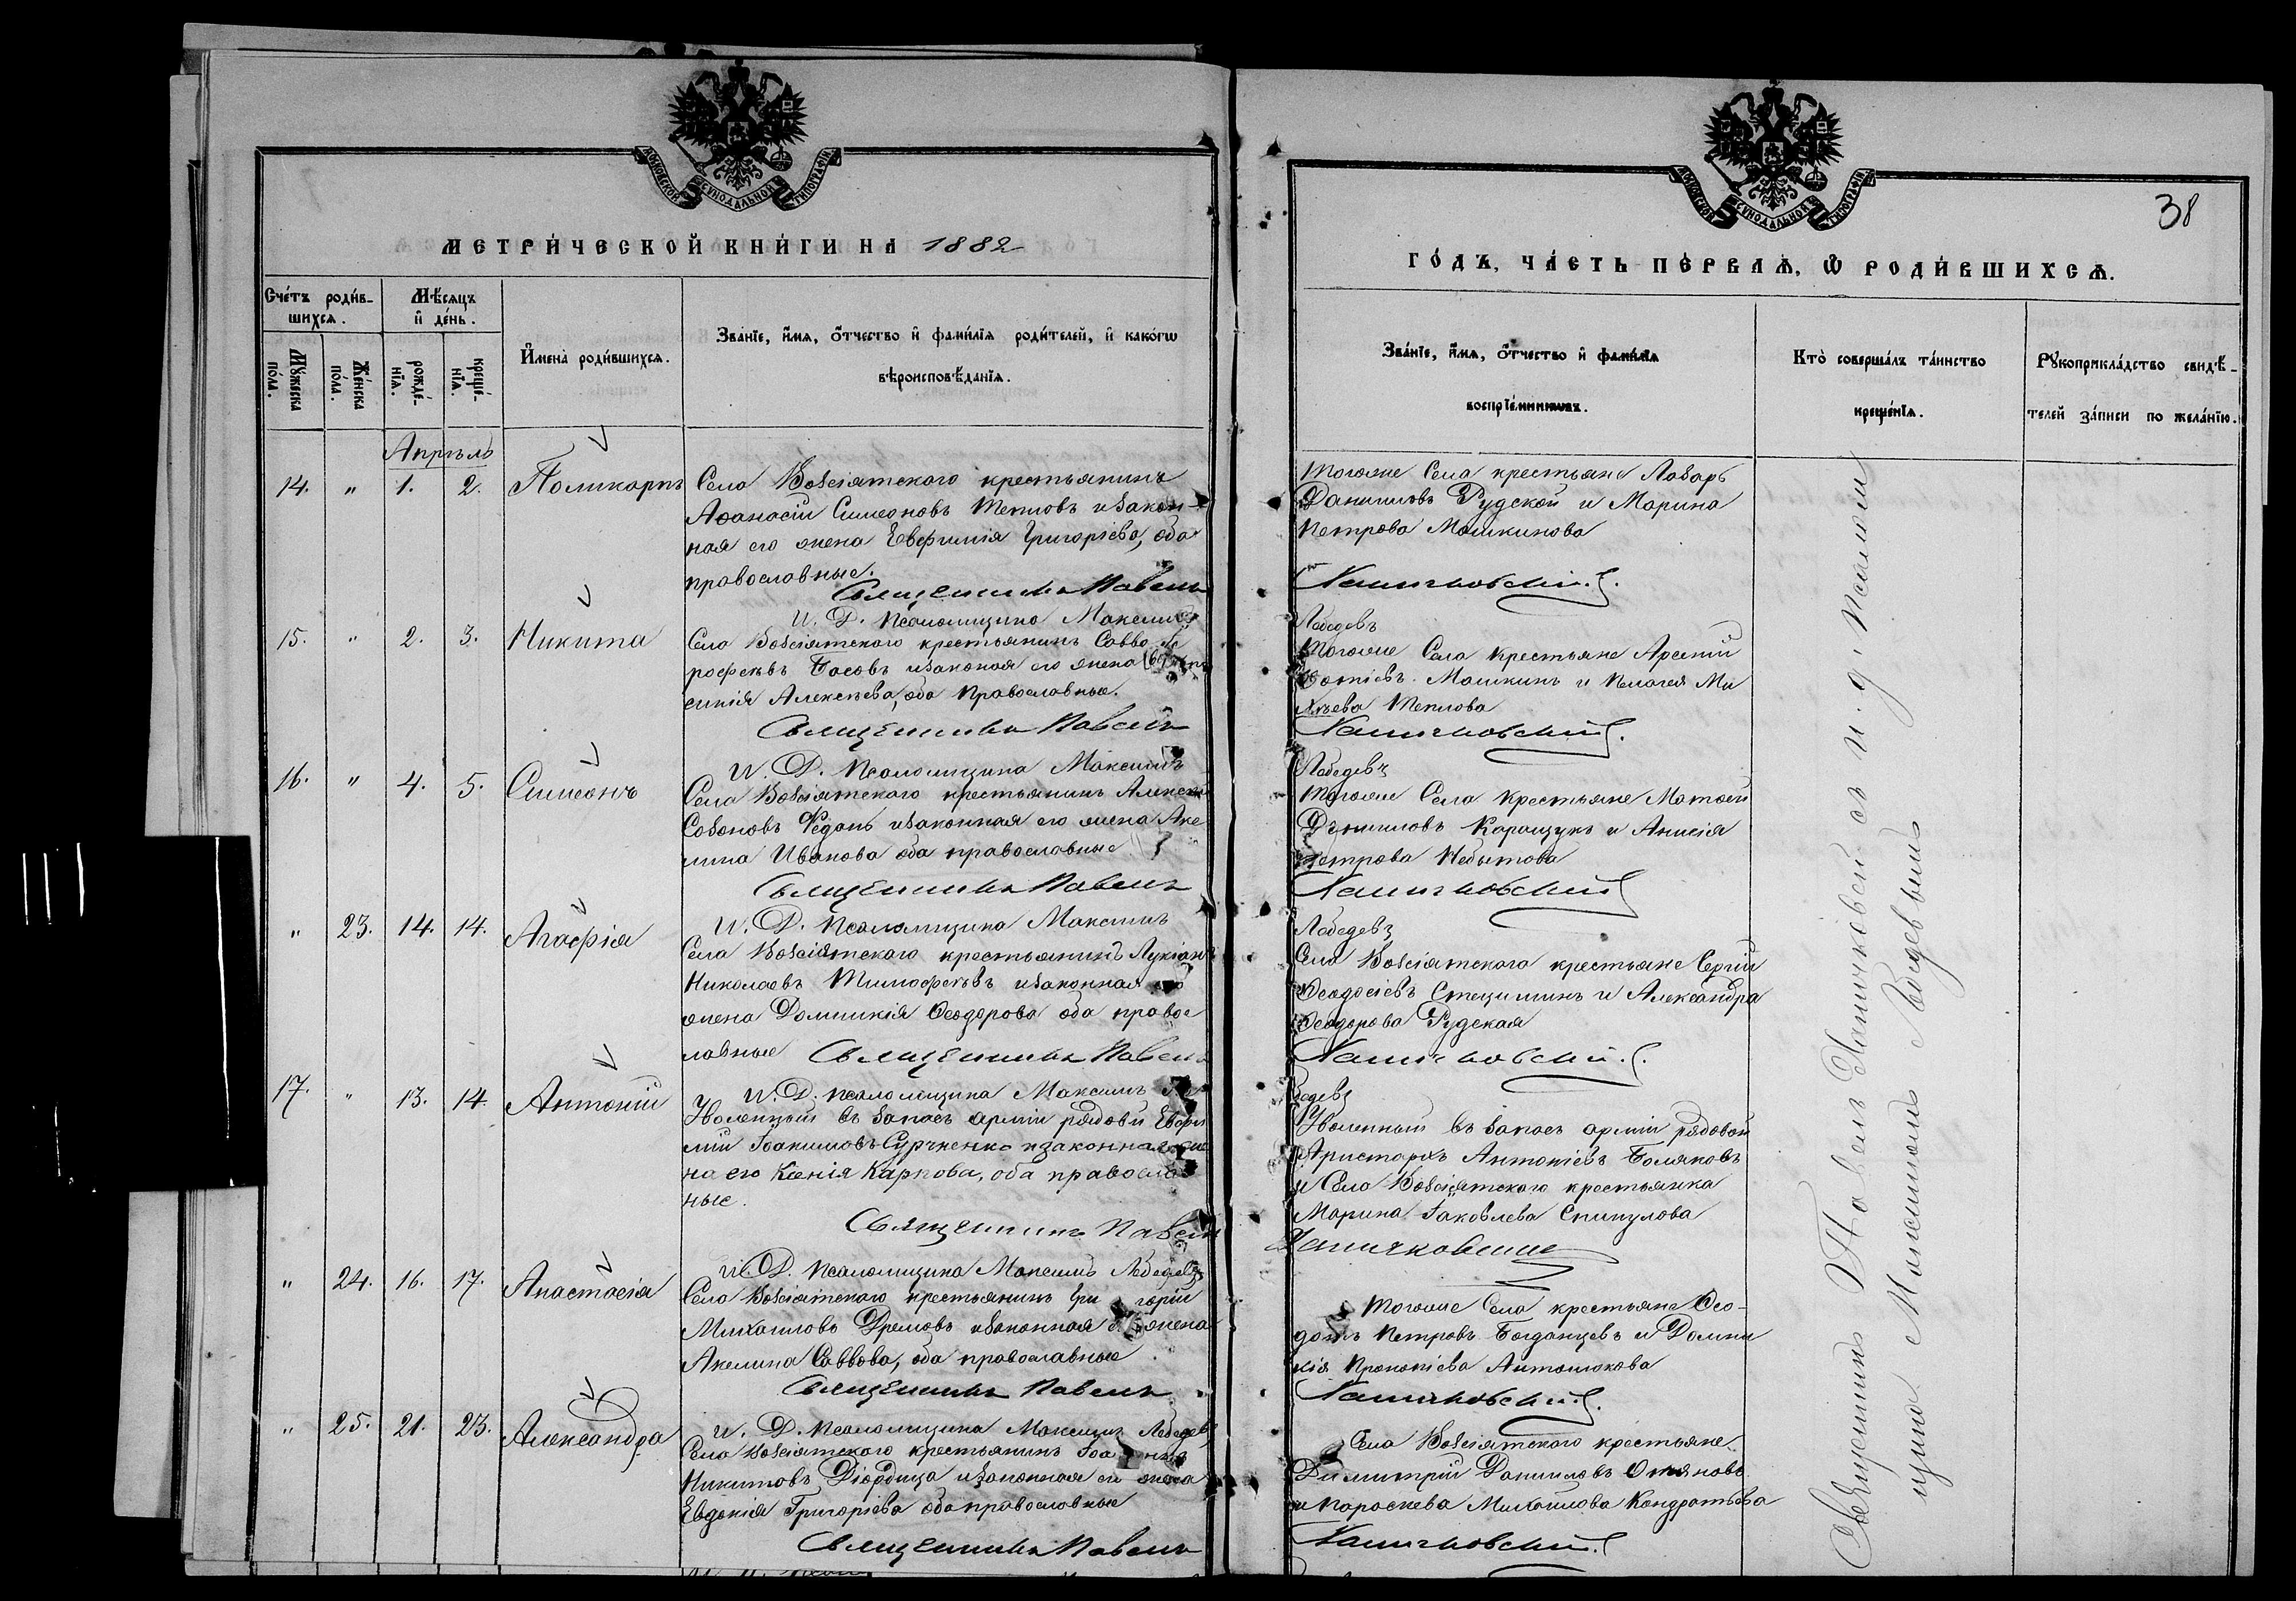 МОСКОВСКОЙ СѴНОДАЛЬНОЙ ТИПОГРАФІИ
МЕТРИ́ЧЕСКОЙ КНИ́ГИ НА 1882
Сче́тъ роди́в-
шихсѧ.
Мѣ́сѧцъ
и҆ де́нь.
И҆мена̀ роди́вшихсѧ.
Зва́нїе, и҆́мѧ, ѻ҆́тчество и҆ фами́лїѧ роди́телей, и҆ како́гѡ
вѣроисповѣ́данїѧ.
Мꙋ́жеска
по́ла.
Же́нска
по́ла.
рожде́-
нїѧ.
креще́-
нїѧ.
Апрѣль
14. " 1. 2. Поликарпъ
Села Возсіятского крестьянинъ
Аѳанасій Симеоновъ Тепловъ и закон-
ная его жена Евфимія Григоріева, оба
православные.
Священникъ Павелъ
И. Д. Псаломщика Максимъ
15. " 2. 3. Никита
Села Возсіятского крестьянинъ Савва
рофеевъ Басовъ и законая его жена
синія Алексѣева, оба православные.
Священникъ Павелъ
И. Д. Псаломщика Максимъ
16. " 4. 5. Симеонъ
Села Возсіятского крестьянинъ Алексѣй
Созоновъ и законная его жена Аке
лина Иванова оба православные
Священникъ Павелъ
И. Д. Псаломщика Максимъ
" 23. 14. 14. Агафія
Села Возсіятского крестьянинъ Лукіанъ
Николаевъ Тимофеевъ и законная его
жена Домникія Ѳеодорова оба правос
лавные Священникъ Павелъ
И. Д. Псаломщика Максимъ Ле
17. " 13. 14. Антоній
Уволенный въ запасъ арміи рядовой Евфи
мій Іоакимовъ Сурченко и законная же
на его Ксенія Карпова, оба православ
ные.
Священникъ Павелъ
И. Д. Псаломщика Максимъ Лебедевъ
" 24. 16. 17. Анастасія
Села Возсіятского крестьянинъ Григорій
Михаиловъ Дремовъ и законная его жена
Акелина Саввова, оба православные
Священникъ Павелъ
И. Д. Псаломщика Максимъ Лебедевъ
" 25. 21. 23. Александра
Села Возсіятского крестьянинъ Іоаннъ
Никитовъ Діордица и законная его жена
Евдокія Григоріева оба православные
Священникъ Павелъ
МОСКОВСКОЙ СѴНОДАЛЬНОЙ ТИПОГРАФІИ
38
ГО́ДЪ, ЧА́СТЬ ПЕ́РВАѦ, Ѡ҆ РОДИ́ВШИХСѦ.
Зва́нїе, и҆́мѧ, ѻ҆́тчество и҆ фами́лїѧ
воспрїе́мниковъ.
Кто̀ соверша́лъ та́инство
креще́нїѧ.
Рꙋкоприкла́дство свидѣ́-
телей за́писи по жела́нїю.
Тогоже Села крестьяне Лазарь
Даниловъ Рудской и Марина
Петрова Машкинова
Ханичковскій.
Лебедевъ
Тогоже Села крестьяне Арсеній
Фотіевъ Машкинъ и Пелагея Ми
хѣева Теплова
Ханичковскій.
Лебедевъ
Тогоже Села крестьяне Матѳей
Даниловъ Каращукъ и Анисія
Петрова Небытова
Ханичковскій
Лебедевъ
Села Возсіятского крестьяне Сергій
Ѳеодосіевъ Стецишинъ и Александра
Ѳеодорова Рудская
Ханичковскій.
бедевъ
Уволенный въ запасъ арміи рядовой
Аристархъ Антоніевъ Поляковъ
и Села Возсіятского крестьянка
Марина Іаковлева
Ханичковскій
Тогоже Села крестьяне Ѳео-
дотъ Петровъ Богданцевъ и Домни
кія Прокопіева Антонюкова
Ханичковскій.
Села Возсіятского крестьяне
Димитрій Даниловъ
и Параскева Михайлова Кондратьева
Ханичковскій.
Священникъ Павелъ Ханичковскій съ и. д. псалом
щика Максимомъ Лебедевымъ